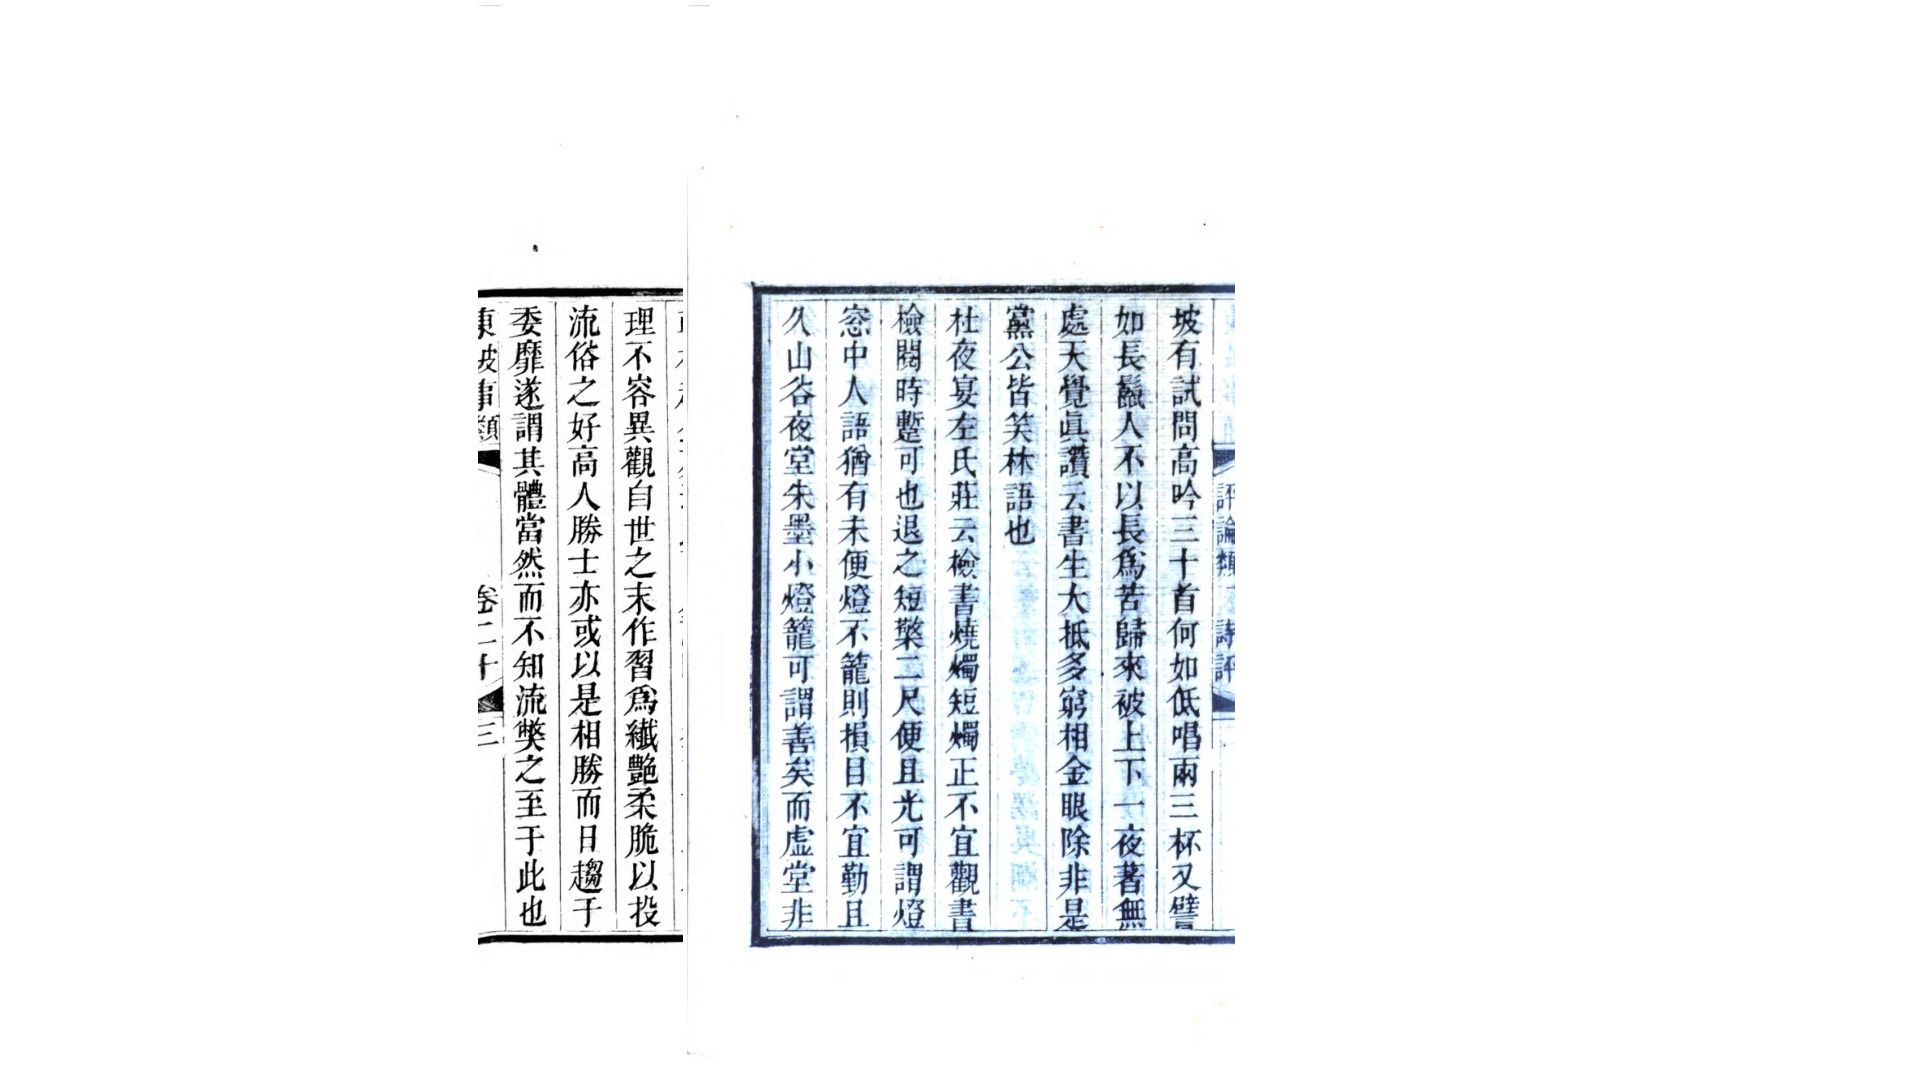 評論類 詩評
坡有試問高吟三十首何如低唱兩三杯又譬
如長鬣人不以長爲苦歸來被上下一夜著無
處天覺眞讚云書生大抵多窮相金眼除非是
黨公皆笑林語也
杜夜宴左氏莊云檢書燒燭短燭正不宜觀書
檢閱時蹔可也退之短檠二尺便且光可謂燈
窓中人語猶有未便燈不籠則損目不宜勤且
久山谷夜堂朱墨小燈籠可謂善矣而虛堂非
理不容異觀自世之末作習爲纖艷柔脆以投
流俗之好高人勝士亦或以是相勝而日趨于
委靡遂謂其體當然而不知流獘之至于此也
東坡事類 卷二十 三